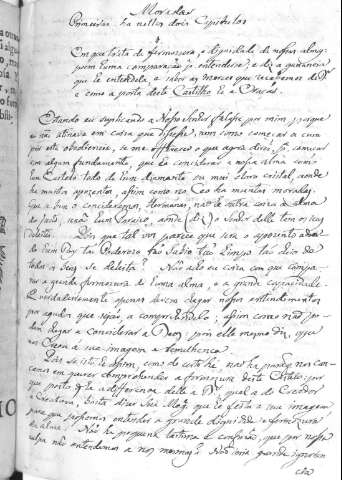 Moradas
Primeiras. ha nellas dois Capitulos
Em que trata da fermosura, e dignidade de nossas almas
poem huma comparação p.ª entenderse, e diz a ganancia
que he entendela, e saber as merces que recebemos de D.s
e como a porta deste Castillo he a Oração.
Estando eu suplicando a Nosso Senhor falasse por mim, porque
eu não atinava em couza que dizer, nem como começar a cum
prir esta obediencia, se me offereceo o que agora direi p.ª começar
com algum fundamento, que he considerar a nossa alma como
hum Castello todo de hum diamante, ou mui claro cristal, aonde
ha muitos apozentos, assim como no Ceo ha muitas moradas.
Que se bem o consideramos, Hermanas, não he outra coiza a alma
do justo, senão hum Paraizo, aonde (diz) o Senhor delle tem os seus
deleites. Pois que tal vos parece que será o apozento aonde
hum Rey tão Poderozo, tão Sabio, tão Limpo, tão cheio de
todos os bens se deleita? Não acho eu coiza com que compa-
rar a grande fermosura de huma alma, e a grande capacidade.
E verdadeiramente apenas devem chegar nossos entendimentos
por agudos que sejão, a comprehendela; assim como não po-
dem chegar a considerar a Deos, pois elle mesmo diz, que
nos creou á sua imagem e semelhança.
Pois se isto he assim, como de certo he, não ha para que nos can-
carmos em querer comprehender a fermosura deste Castello; por
que posto q̃ ha a differença delle a D.s qual a do Creador
a Creatura, basta dizer Sua Mag.e que he feita a sua imagem
para que possamos entender a grande dignidade e fermosura
da alma. Não he pequena lastima e confusão, que por nossa
culpa não entendamos a nos mesmos? Não seria grande ignoran
cia